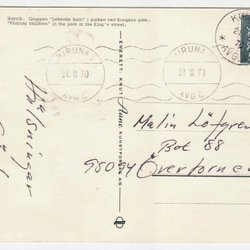 Narvik. Gruppen "Lekende barn" i parken ved Kongens gate.
"Playing children" in the park at the King's street.
KIRUNA
21.8.70
AVG C
KIRUNA
21.8.70
AVG C
ENERETT: KNUT Aune KUNSTFORLAG AS
Malin Löfgren
Box 88
95094 Övertorneå